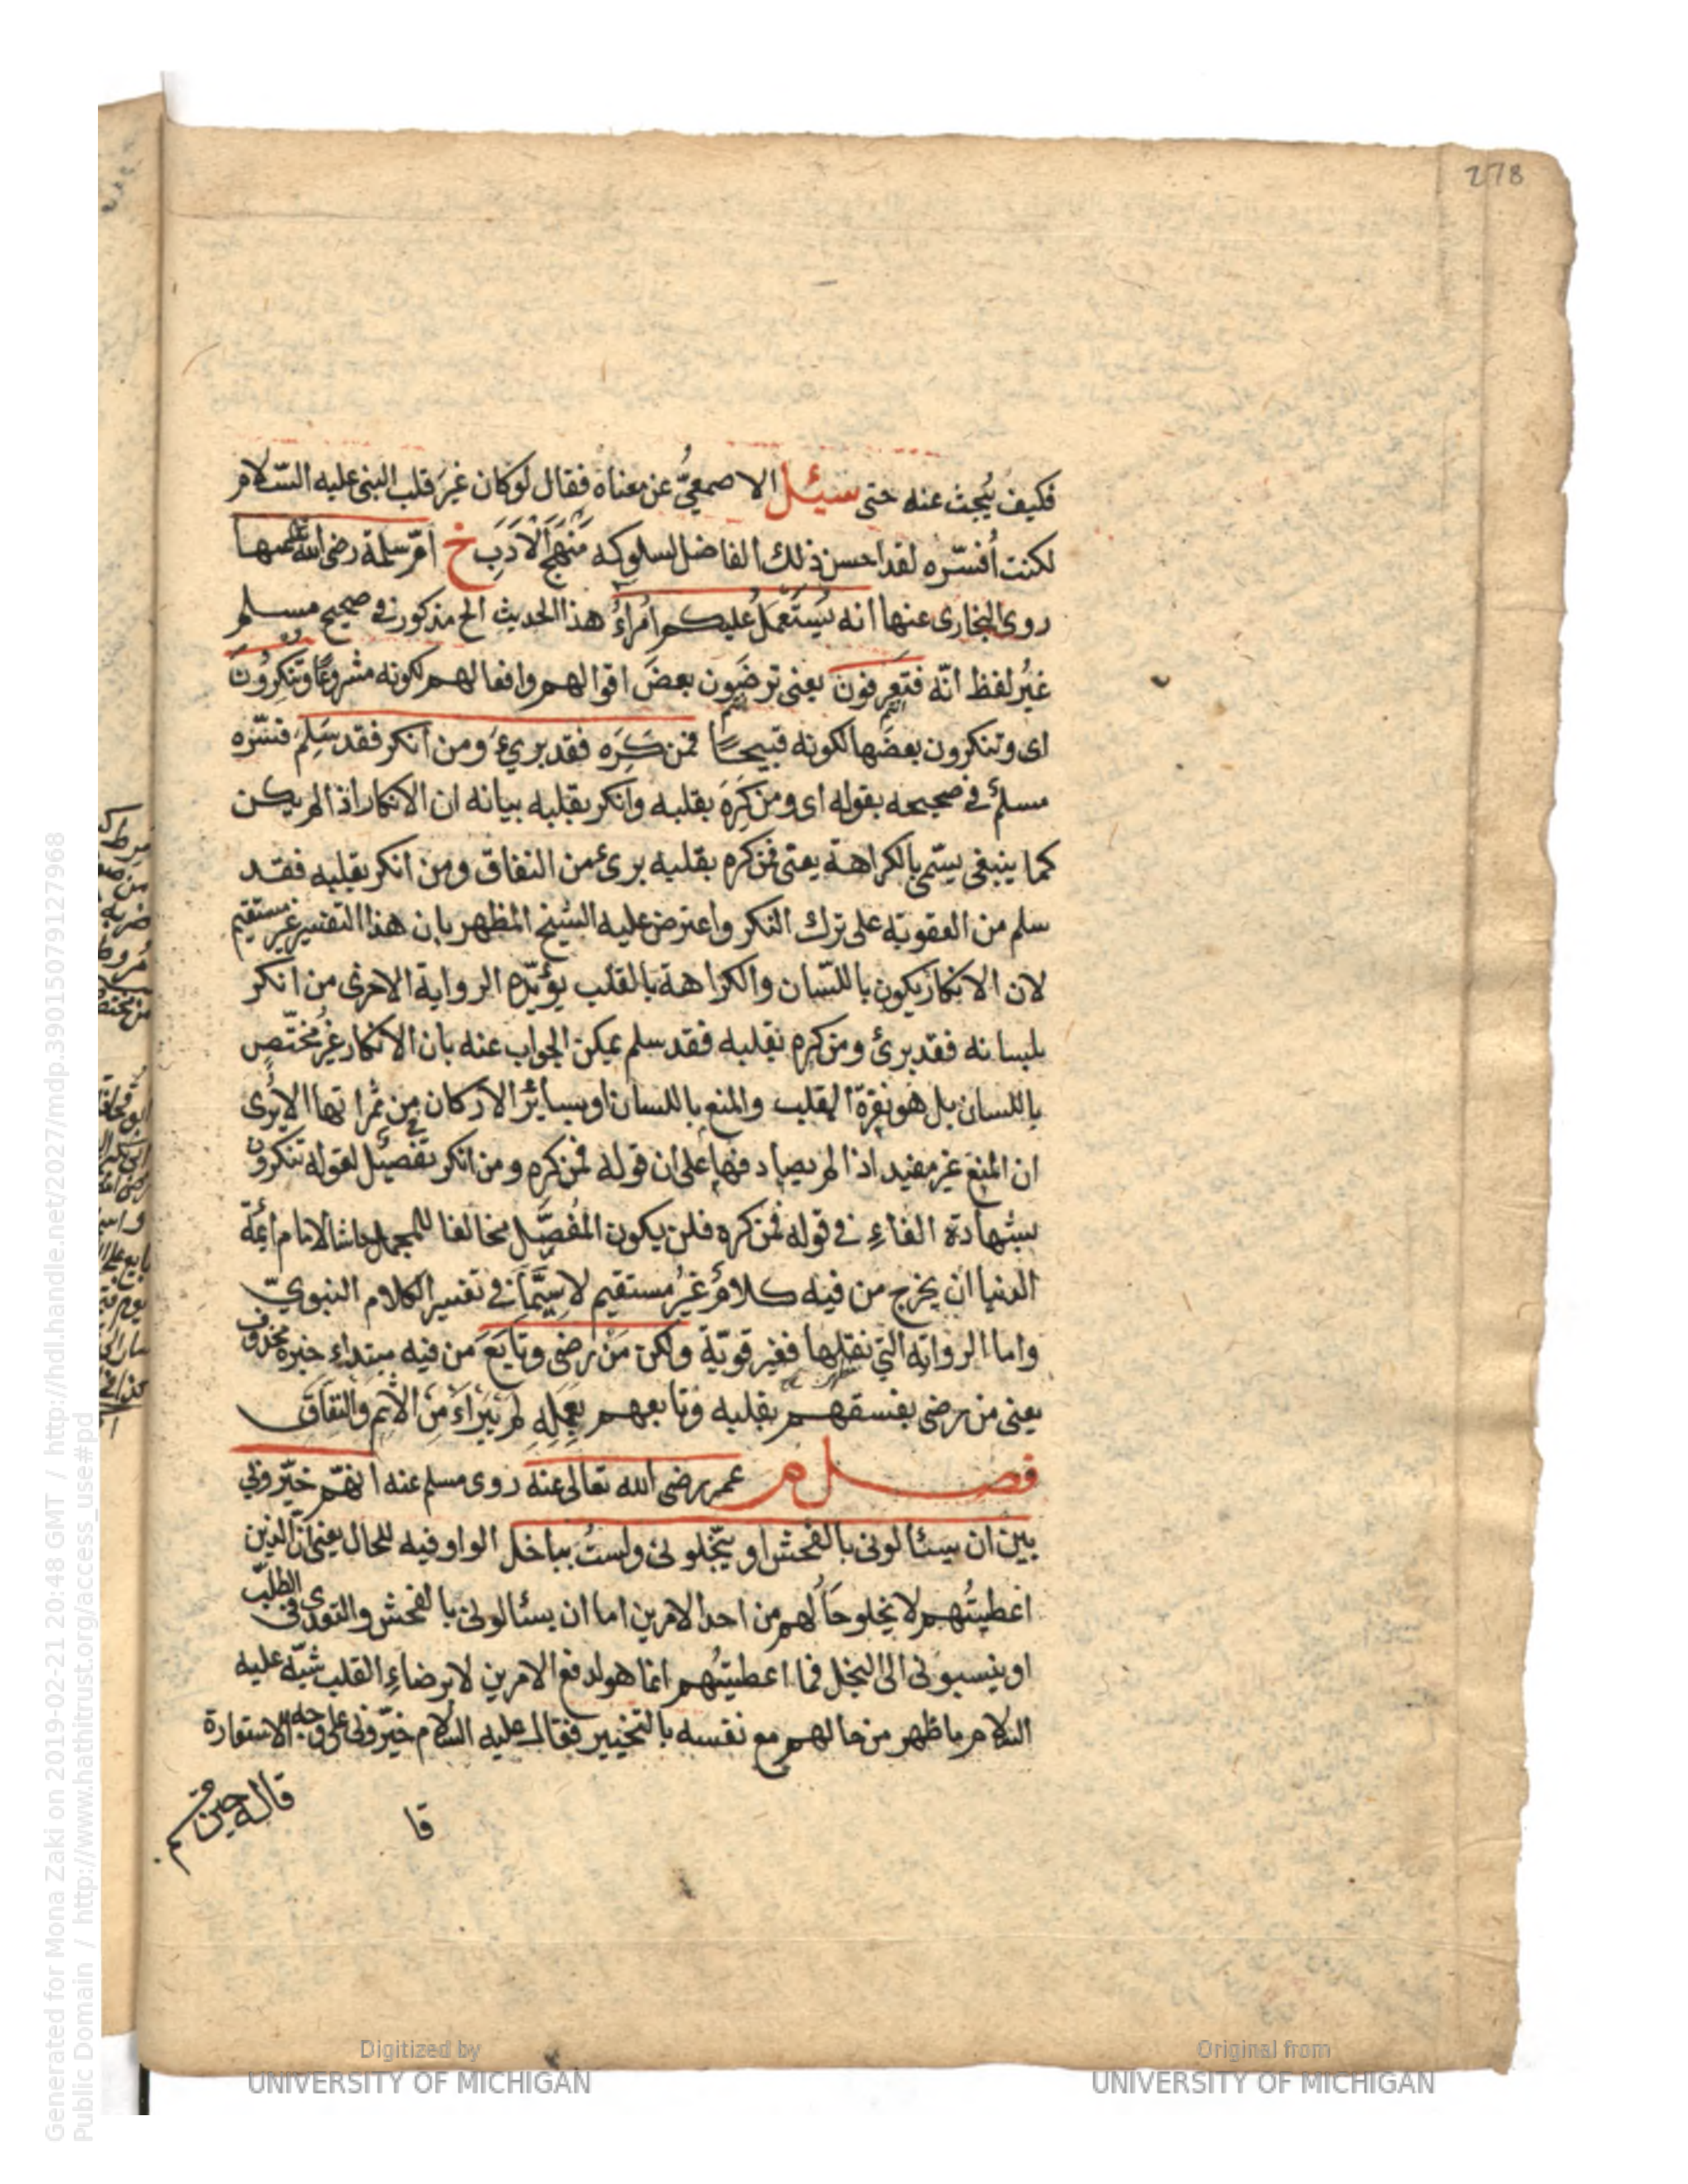 278
فكيف يُبحث عنه حتى سيئل الاصمعيُّ عن معناه فقال لوكان غيرَ قلب النبي عليه السّلام
لكنت اُفسّره لقد احسن ذلك الفاضل لسلوكه مَنْهَجَ الْاَدَبِ خ اُمّ سلمة رضى الله عنها
روى البخارى عنها انه يُسْتَعْمَلُ عليكم اُمَرَاءُ هذا الحديث الخ مذكور فى صحيح مسلم
غيرُ لفظ انّه فتعرفونَ يعنى ترضَون بعضَ اقوالهم وافعالهم لكونه مشروعًا وتنكرونَ
اى وتنكرون بعضَها لكونه قبيحًا فمن كَرِه فقد بريءَ ومن انكر فقد سَلِمَ فسّره
مسلمٌ فى صحيحه بقوله اى ومن كَرِهَ بقلبه وانكر بقلبه بيانه ان الانكار اذا لم يكن
كما ينبغى يسمّى بالكراهة يعنى فمن كره بقلبه برئ من النفاق ومن انكر بقلبه فقد
سلم من العقوبة على ترك النكر واعترض عليه الشيخ المظهر بان هذا التفسير غير مستقيم
لان الانكار يكون باللسان والكراهة بالقلب يؤيّده الرواية الاخرى من انكر
بلسانه فقد برئ ومن كره بقلبه فقد سلم يمكن الجواب عنه بان الانكار غيرُ مختصٍ
باللسان بل هو نفرة القلب والمنع باللسان او بسائر الاركان من ثمراتها الا يرى
ان المنع غير مفيد اذا لم يصادفها على ان قوله فمن كره ومن انكر تفصيل لقوله تنكرون
بشهادة الفاءِ فى قوله فمن كره فلن يكون المُفَصَّل مخالفا للمجمل حاشا لامام ائمّة
الدنيا ان يخرج من فيه كلامٌ غيرُ مستقيم لاسِيَّمَا فى تفسير الكلام النبويّ
واما الرواية التى نقلها فغير قويّة ولكن مَنْ رضى وتابَعَ من فيه مبتداء خبره محذوف
يعنى من رضى بفسقهم بقلبه وتابعهم بعَمَلِهِ لم يَبْرَاءْ مِنَ الْاِثم والنّفاقِ
فصل م عمر رضى الله تعالى عنه روى مسلم عنه انّهم خيّرونى
بين ان يسئالونى بالفحش او يبخّلونى ولستُ بباخل الواو فيه للحال يعنى انّ الذين
اعطيتُهم لا يخلو حالُهم من احد الامرين اما ان يسئالونى بالفحش والتعدى فى الطلب
او ينسبونى الى البخل فما اعطيتُهم انما هو لدفع الامرين لا برضاءِ القلب شبّه عليه
السلام ما ظهر من حالهم مع نفسه بالتخيير فقال عليه السلام خيّرونى على وجه الاستعارة
قا
قاله حين
Digitized by
UNIVERSITY OF MICHIGAN
Original from
UNIVERSITY OF MICHIGAN
Generated for Mona Zaki on 2019-02-21 20:48 GMT / http://hdl.handle.net/2027/mdp.39015079127968
Public Domain / http://www.hathitrust.org/access_use#pd